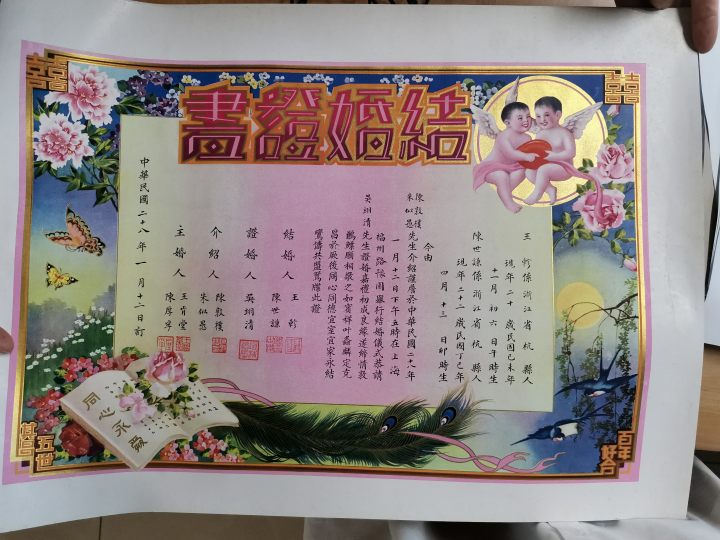 囍
囍
結婚證書
係浙江省杭縣人
現年二十歲民國己未年
十一月初六日午時生
陳世謙係浙江省杭縣人
現年二十二歲民國丁巳年
四月十三日卯時生
今由
陳敦樸
朱似愚先生介紹謹詹於中華民國二十八年
一月十二日下午五時在上海
福州路園舉行結婚儀式恭請
吳翊清先生證婚嘉禮初成良緣遂締情敦
鶼鰈願相敬之如賓祥叶螽麟定克
昌於厥後同心同德宜室宜家永結
鸞儔共盟鴛牒此證
結婚人 王
陳世謙
證婚人 吳翊清
介紹人 陳敦樸
朱似愚
主婚人 王
陳厚
中華民國二十八年一月十二日訂
同心永愛
百年好合
五世其昌